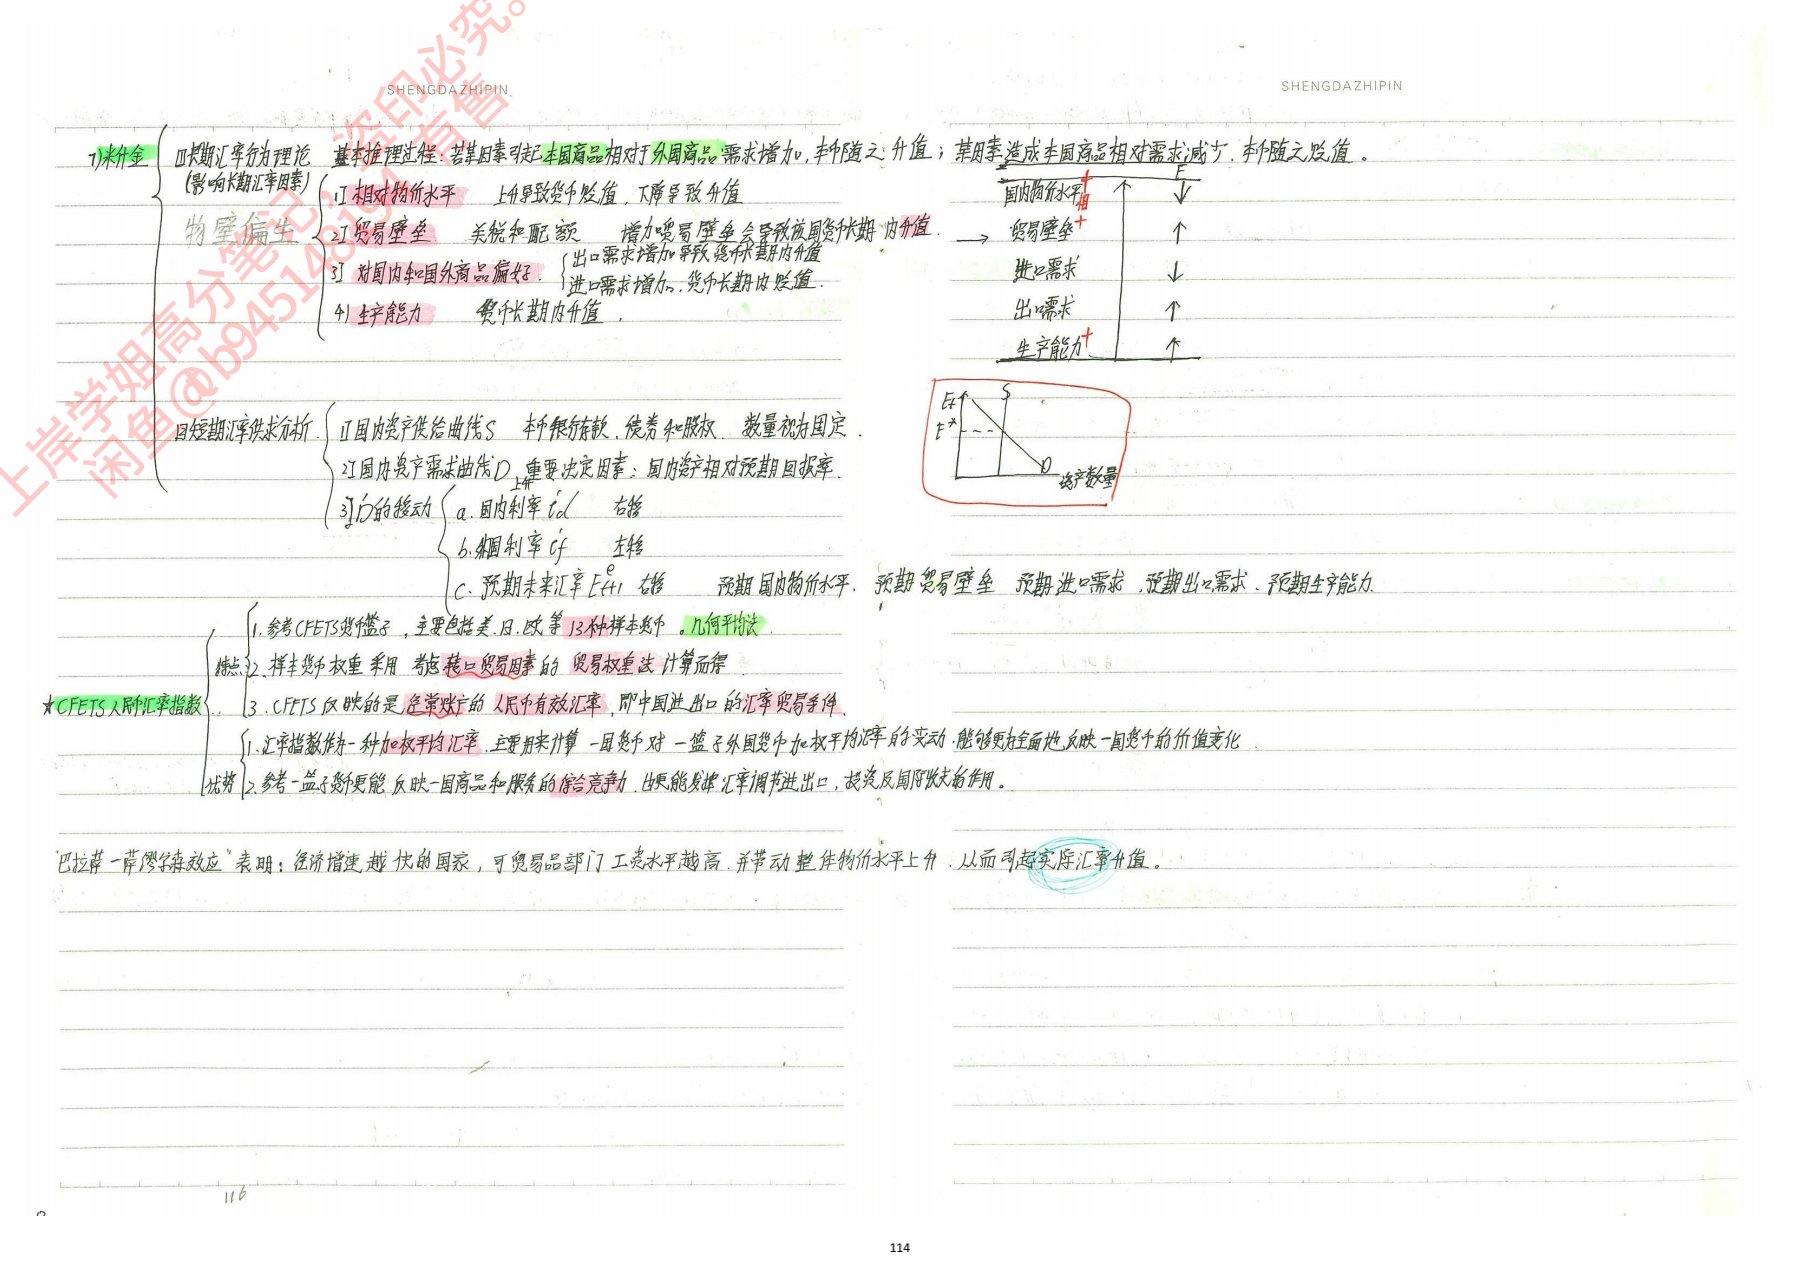 SHENGDAZHIPIN
SHENGDAZHIPIN
上岸学姐高分笔记，盗印必究。
7)米什金
[1]长期汇率行为理论 基本推理过程：若某因素引起本国商品相对于外国商品需求增加，本币随之升值；某因素造成本国商品相对需求减少，本币随之贬值。
(影响长期汇率因素)
物壁偏生
1] 相对物价水平 上升导致货币贬值，下降导致升值
2] 贸易壁垒 关税和配额 增加贸易壁垒会导致该国货币长期内升值. →
3] 对国内和国外商品偏好. 出口需求增加导致货币长期内升值
进口需求增加，货币长期内贬值.
4] 生产能力 货币长期内升值.
E
国内物价水平 + 相 ↑ ↓
贸易壁垒 + ↑
进口需求 ↓
出口需求 ↑
生产能力 + ↑
[2]短期汇率供求分析.
1] 国内资产供给曲线S 本币银行存款、债券和股权. 数量视为固定.
2] 国内资产需求曲线D 重要决定因素：国内资产相对预期回报率.
3] D的移动
上升
a. 国内利率 id 右移
b. 外国利率 if 左移
c. 预期未来汇率 Eet+1 右移 预期国内物价水平、预期贸易壁垒 预期进口需求、预期出口需求、预期生产能力.
Et
E*
S
D
资产数量
★CFETS人民币汇率指数
特点
1. 参考CFETS货币篮子，主要包括美、日、欧等13种样本货币。几何平均法.
2. 样本货币权重采用 考虑转口贸易因素的 贸易权重法 计算而得
3. CFETS反映的是经常账户的 人民币有效汇率，即中国进出口的汇率贸易条件.
优势
1. 汇率指数作为一种加权平均汇率，主要用来计算一国货币对一篮子外国货币加权平均汇率的变动.能够更为全面地反映一国货币的价值变化
2. 参考一篮子货币更能反映一国商品和服务的综合竞争力.也更能发挥汇率调节进出口，投资及国际收支的作用。
“巴拉萨一萨缪尔森效应”表明：经济增速越快的国家，可贸易品部门工资水平越高.并带动整体物价水平上升.从而引起实际汇率升值。
116
114